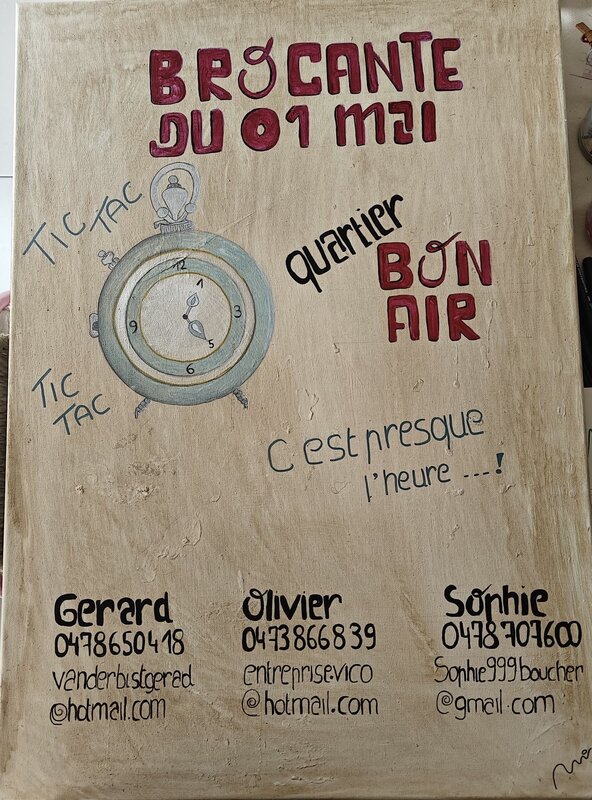 BROCANTE
DU 01 MAI
TIC TAC
quartier
BON
AIR
12
1
3
5
6
9
TIC
TAC
C'est presque
l'heure ...!
Gerard
0478650418
vanderbistgerad
@hotmail.com
Olivier
0473866839
entreprise.vico
@hotmail.com
Sophie
0478707600
Sophie999boucher
@gmail.com